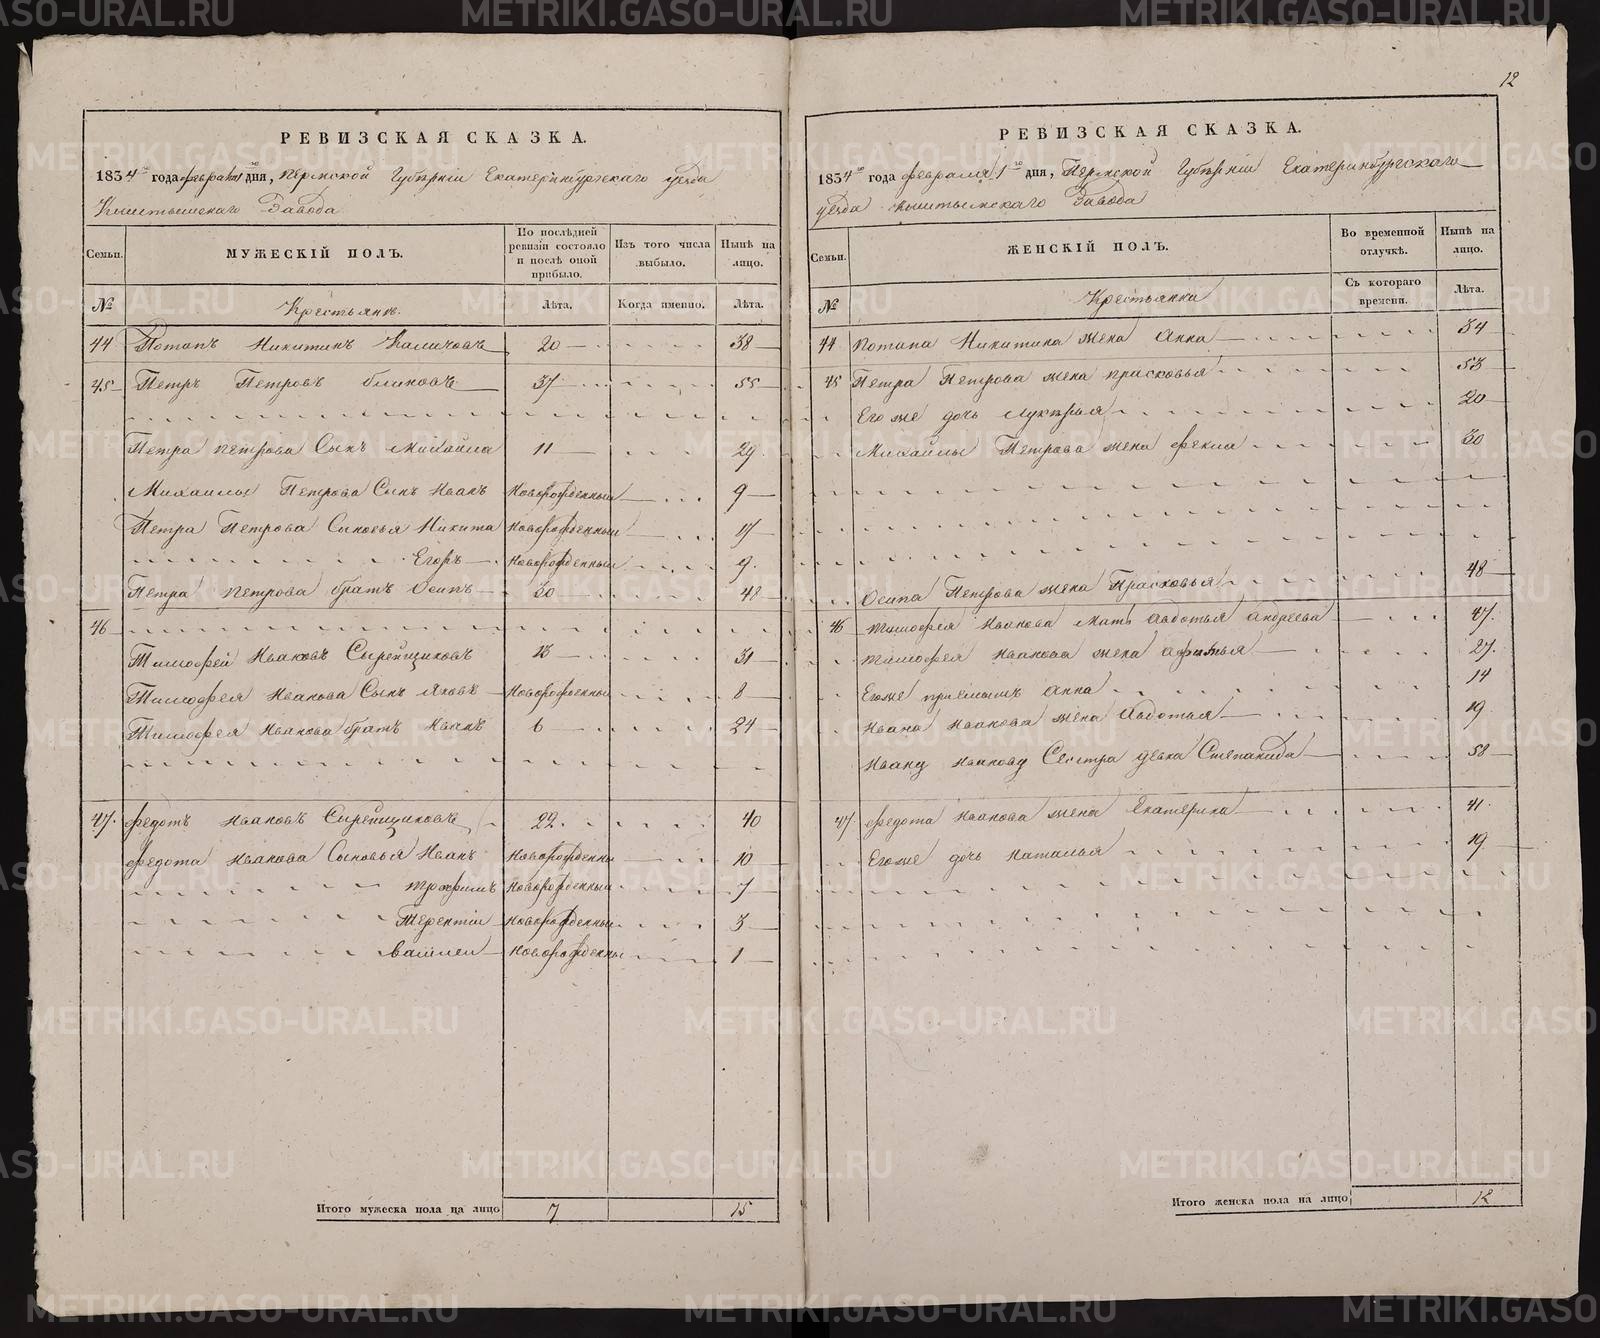 12
РЕВИЗСКАЯ СКАЗКА.
1834 года февраля 1 дня, Пермской Губерніи Екатеринбургскаго уезда
Кыштымскаго Завода
Семьи. МУЖЕСКІЙ ПОЛЪ. По послѣдней ревизіи состояло и послѣ оной прибыло. Изъ того числа выбыло. Нынѣ на лицо.
№ Крестьянъ. Лѣта. Когда именно. Лѣта.
44 Потапъ Никитинъ 20 38
45 Петръ Петровъ Блиновъ 37 55
Петра Петрова Сынъ Михайла 11 29
Михайлы Петрова Сынъ Иванъ Новорожденный 9
Петра Петрова Сыновья Никита Новорожденный 17
Егоръ Новорожденный 9
Петра Петрова братъ Осипъ 30 48
46
Тимофей Ивановъ Сырейщиковъ 13 31
Тимофея Иванова Сынъ Яковъ Новорожденны 8
Тимофея Иванова братъ Иванъ 6 24
47. Федотъ Ивановъ Сырейщиковъ 22. 40
Федота Иванова Сыновья Иванъ Новорожденны 10
Трофимъ Новорожденный 7
Терентіи Новорожденный 3
Василеи Новорожденны 1
Итого мужеска пола на лицо 7 15
РЕВИЗСКАЯ СКАЗКА.
1834 года февраля 1 дня, Пермской Губерніи Екатеринбургскаго
уезда Кыштымскаго Завода
Семьи. ЖЕНСКІЙ ПОЛЪ. Во временной отлучкѣ. Нынѣ на лицо.
№ Крестьянки Съ котораго времени. Лѣта.
44 Потапа Никитина жена Анна 34
45 Петра Петрова жена Прасковья 53
Его же дочь Лукерья 20
Михайлы Петрова жена Фекла 30
Осипа Петрова жена Прасковья 48
46 Тимофея Иванова Мать Авдотья Андреева 47.
Тимофея Иванова жена Афимья 27.
Егоже приемышъ Анна 14
Ивана Иванова жена Авдотья 19
Ивану Иванову Сестра девка Степанида 58
47. Федота Иванова жена Екатерина 41.
Егоже дочь Наталья 19
Итого женска пола на лицо 12
METRIKI.GASO-URAL.RU